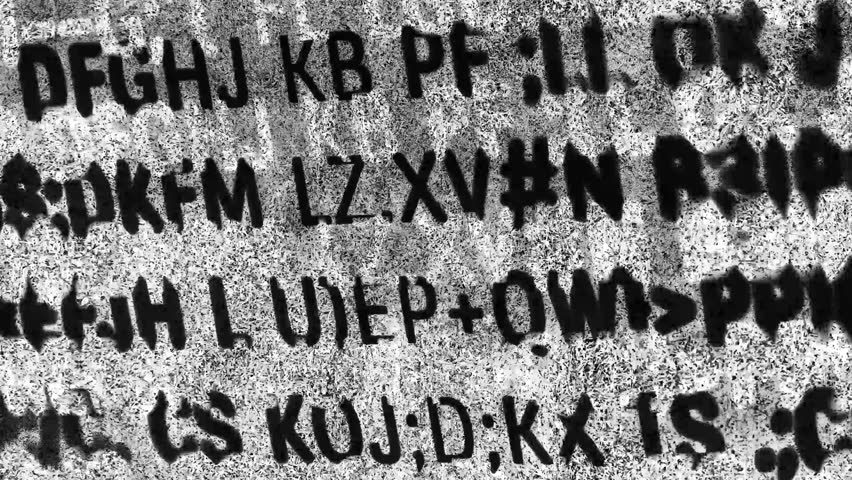 DFGHJ KB PF ;I.I. OK J
B;DKFM LZ.XV#N R;
JH L U)EP+QW)>PP
CS KUJ;D;KX IS ;C